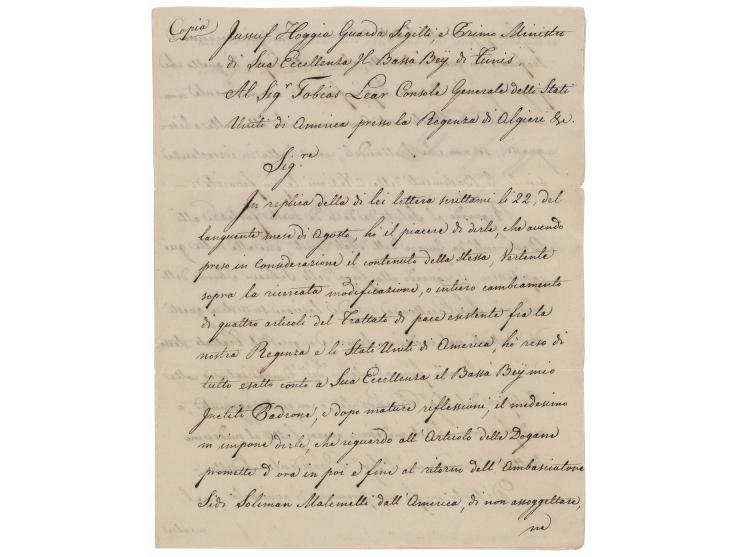 Copia
Jussuf Hoggia Guarda Sigilli, e Primo Ministro
di Sua Eccellenza Jl Bassà Bey di Tunis
Al Sigr Tobias Lear Console Generale delli Stati
Uniti di America presso la Regenza di Algieri &c.
Sig.re
In replica della di lei lettera scrittami li 22, del
languente mese di Agosto, hò il piacere di dirle, che avendo
preso in Considerazione il contenuto della stessa, Vertente
sopra la ricercata modificazione, o intiero cambiamento
di quattro articoli del Trattato di pace esistente fra la
nostra Regenza e li Stati Uniti di America, hò reso di
tutto esatto conto a Sua Eccellenza il Bassà Bey mio
Inclito Padrone, e dopo mature riflessioni, il medesimo
m impone dirle, che riguardo all' Articolo delle Dogane
promette d'ora in poi e fine al ritorno dell' Ambasciatore
Sidi Soliman Malemelli dall' America, di non assoggettare,
ne